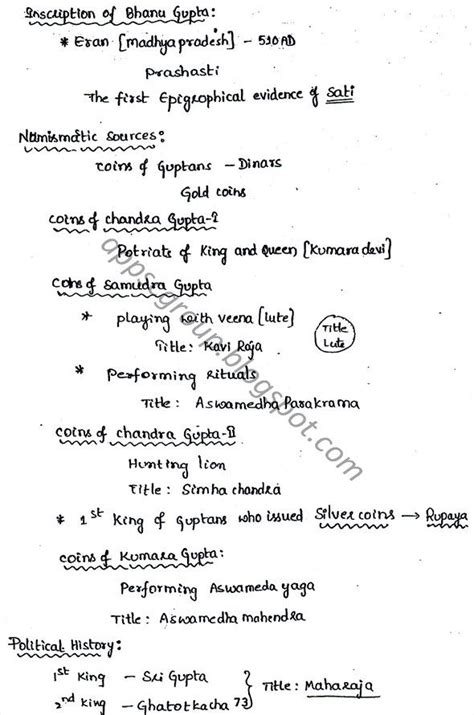 Inscription of Bhanu Gupta:
* Eran [Madhyapradesh] - 510AD
Prashasti
The first Epigrophical evidence of Sati
Numismatic Sources:
Coins of Guptans - Dinars
Gold coins
Coins of Chandra Gupta-I
Potriats of King and Queen [Kumara devi]
Coins of Samudra Gupta
* Playing with veena [lute]
Title: Kavi Raja
Title
Lute
* Performing Rituals
Title: Aswamedha Parakrama
Coins of Chandra Gupta-II
Hunting lion
Title: Simha chandra
* 1st King of Guptans who issued Silver coins → Rupaya
Coins of Kumara Gupta:
Performing Aswameda yaga
Title: Aswamedha mahendra
Political History:
1st King - Sri Gupta
2nd King - Ghatotkacha
} Title: Maharaja
73
appscgroup.blogspot.com